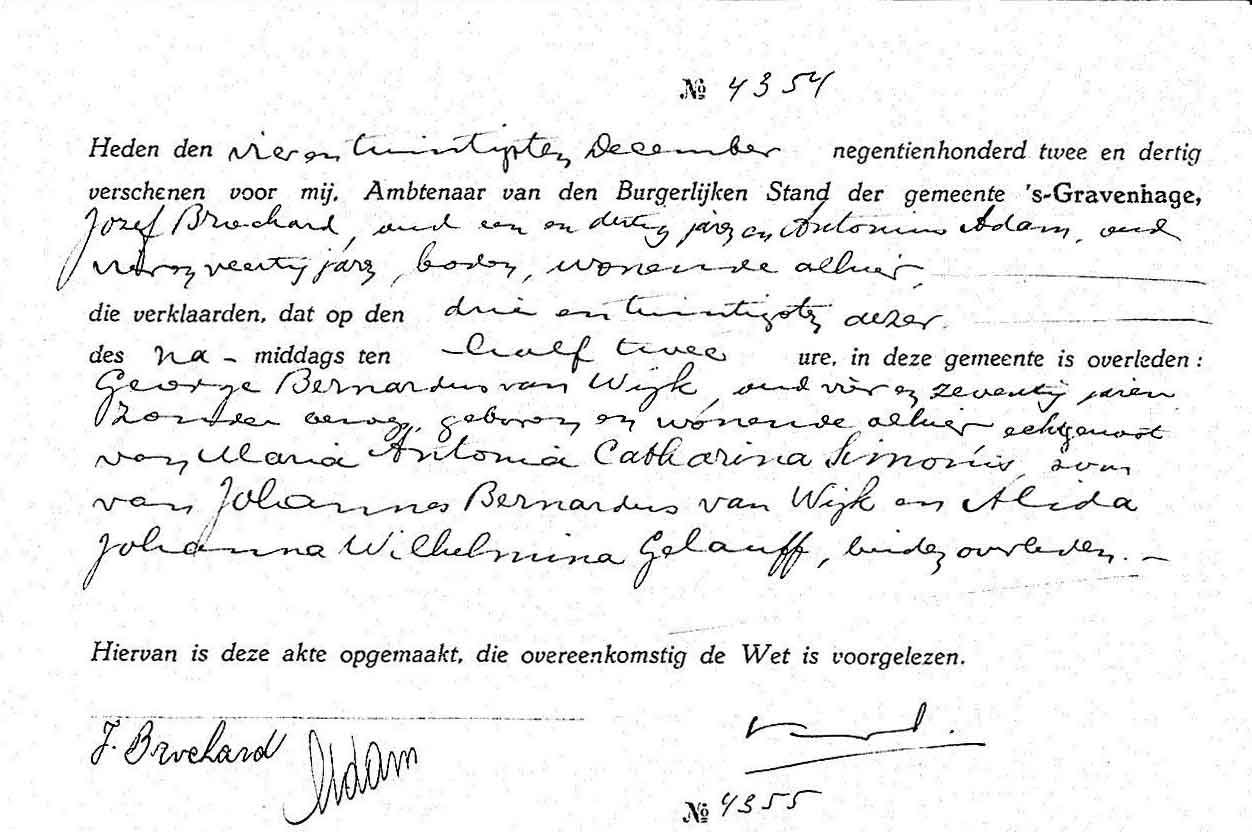 No 4354
Heden den vier en twintigsten December negentienhonderd twee en dertig
verschenen voor mij, Ambtenaar van den Burgerlijken Stand der gemeente 's-Gravenhage,
Jozef Brochard, oud een en dertig jaren en Antonius Adam, oud
vier en veertig jaren, boden, wonende alhier,
die verklaarden, dat op den drie en twintigsten dezer
des na-middags ten half twee ure, in deze gemeente is overleden:
George Bernardus van Wijk, oud vier en zeventig jaren
zonder beroep, geboren en wonende alhier, echtgenoot
van Maria Antonia Catharina Simonis, zoon
van Johannes Bernardus van Wijk en Alida
Johanna Wilhelmina Gelauff, beiden overleden. -
Hiervan is deze akte opgemaakt, die overeenkomstig de Wet is voorgelezen.
J. Brochard Adam
No 4355